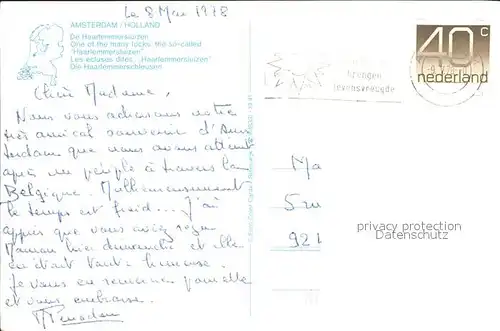 Le 8 Mai 1978
AMSTERDAM / HOLLAND
De Haarlemmersluizen
One of the many locks, the so-called
"Haarlemmersluizen"
Les écluses dites, "Haarlemmersluizen"
Die Haarlemmerschleuzen
40 c
nederland
brengen
levensvreugde
Chère Madame,
Nous vous adressons notre
très amical souvenir d'Ams
terdam que nous avons atteint
après un périple à travers la
Belgique. Malheureusement
le temps est froid... J'ai
appris que vous aviez reçu
Maman hier dimanche et elle
en était toute heureuse.
Je vous en remercie pour elle
et vous embrasse.
Ma
5 ru
921
privacy protection
Datenschutz